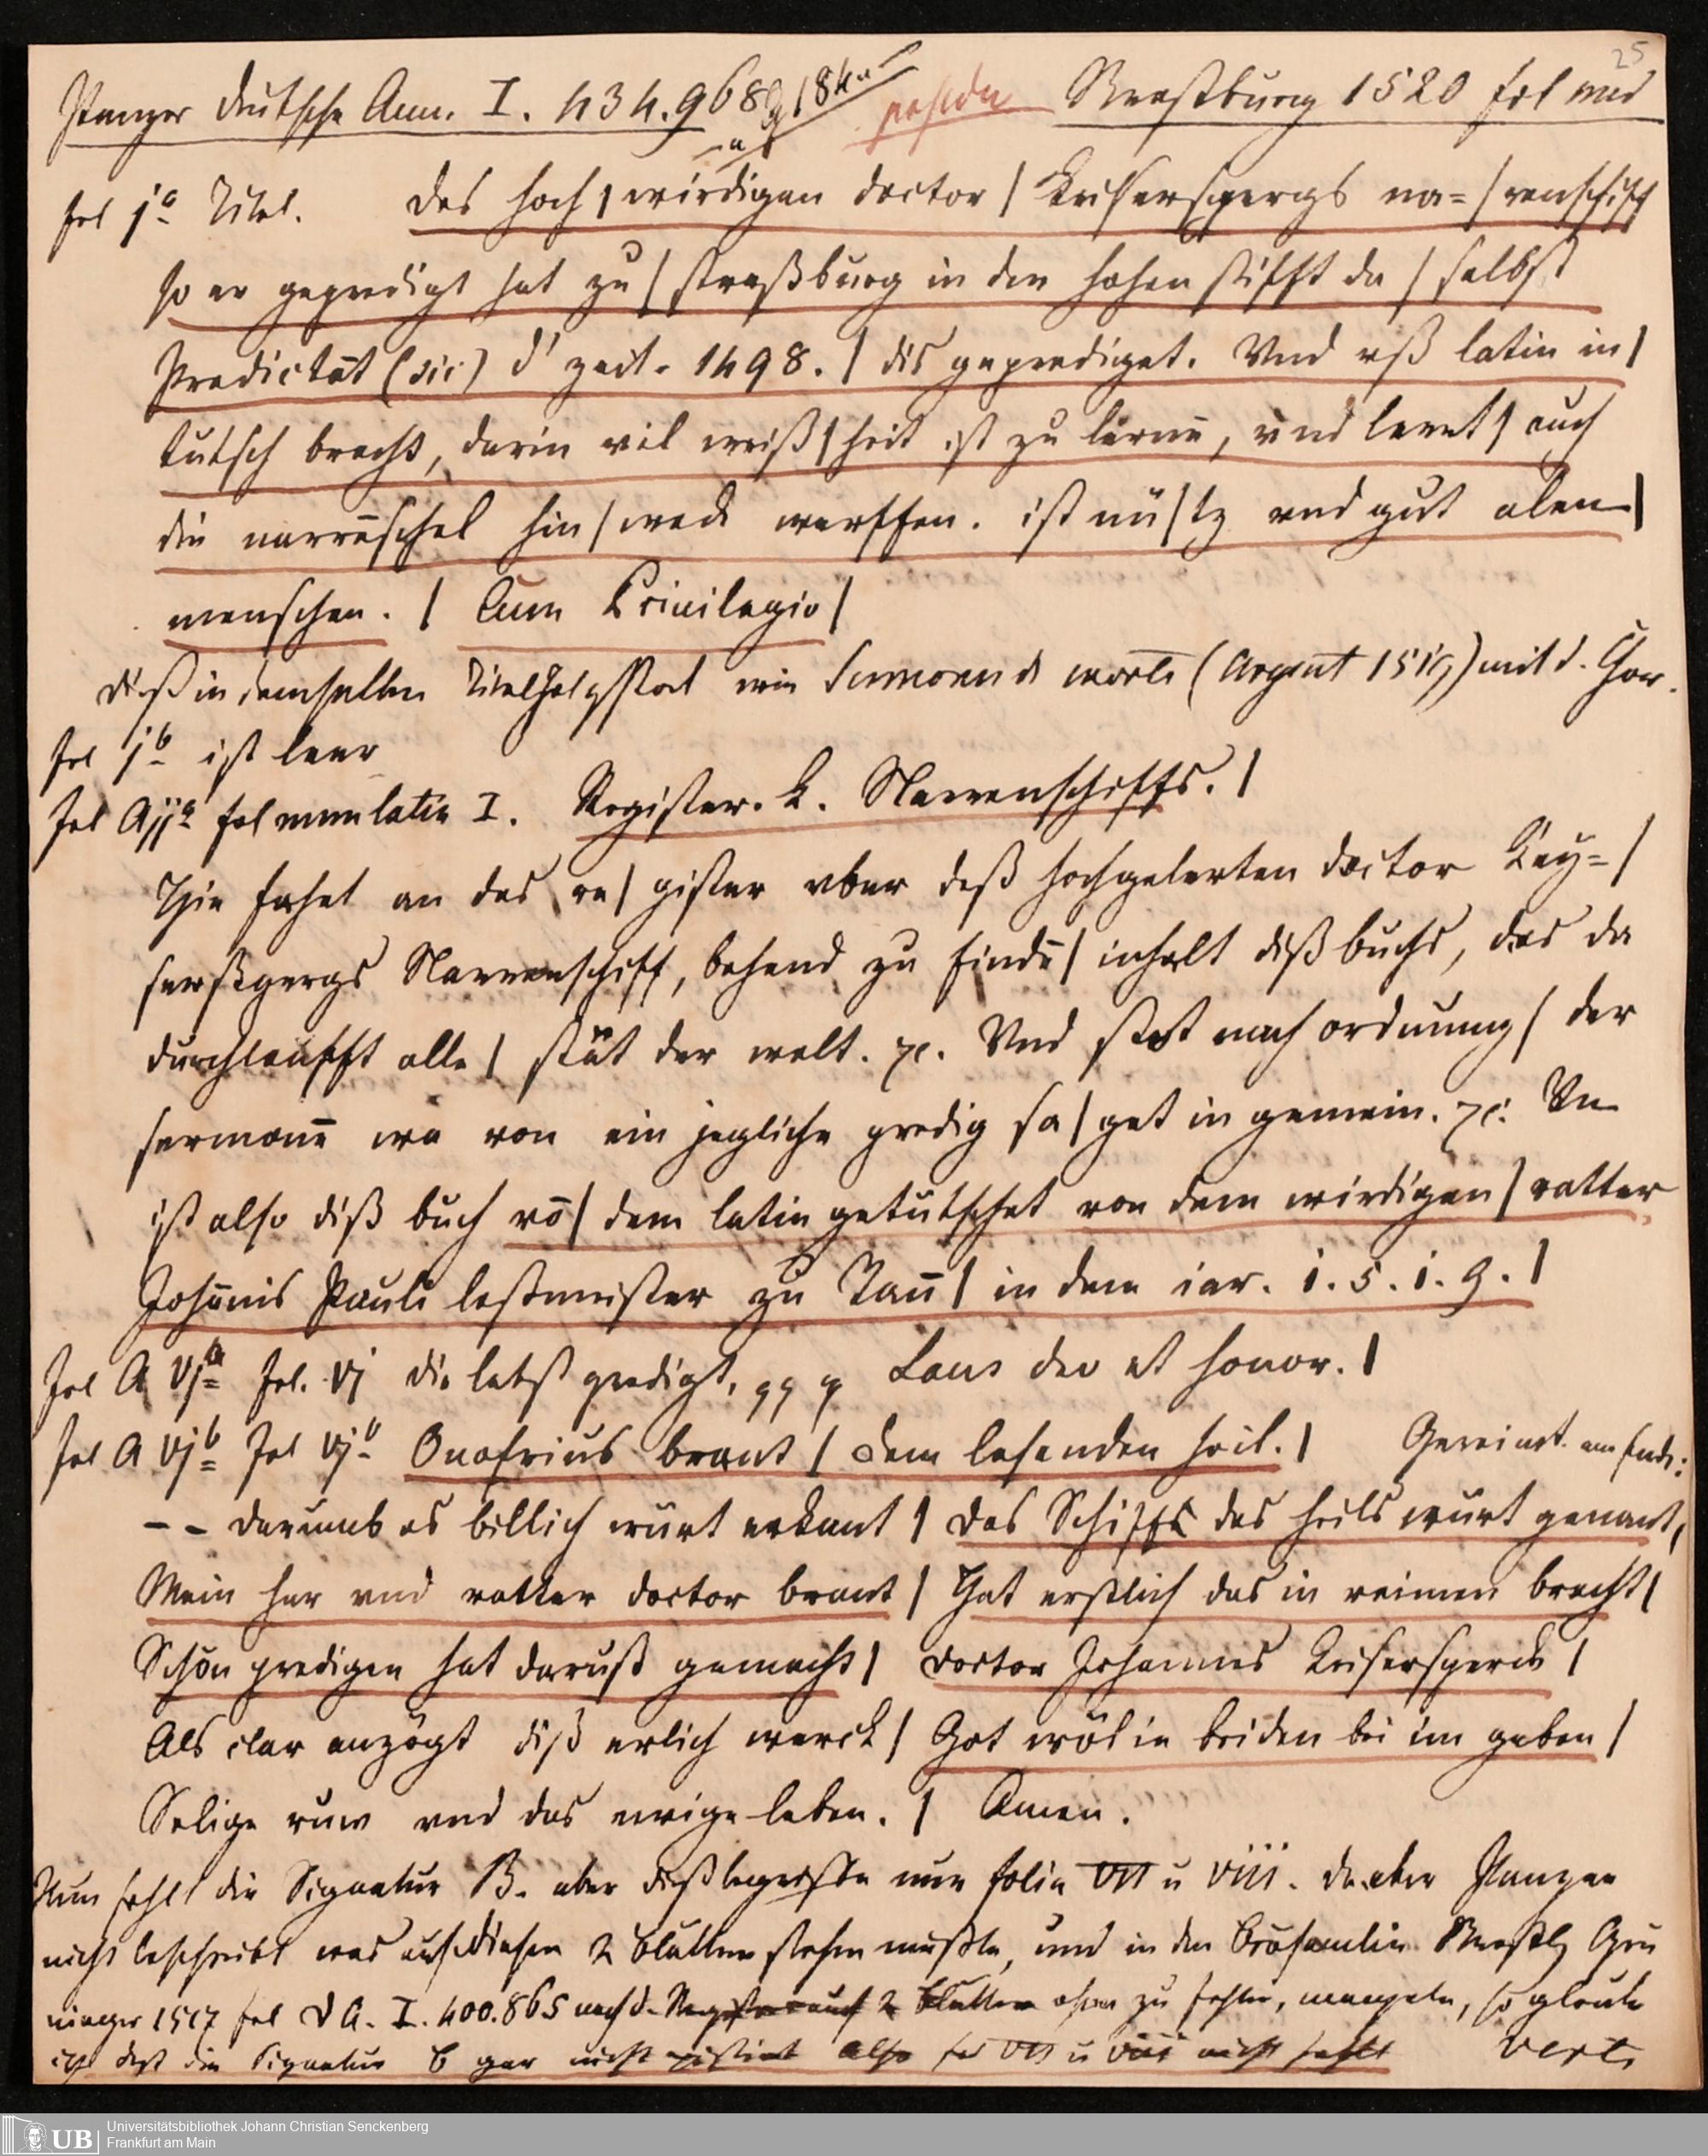 25
Panzer deutsche Ann. I. 434. 968 Strassburg 1520 fol med
fol j a Titel. Des hoch | wirdigen doctor | Keiserspergs na= | renschiff
so er geprediget hat zu | straßburg in der hohen stifft da | selbst
Predictāt (sic) d' zeit. 1498. | dis geprediget. Vnd vß latin in |
tütsch bracht, darin vil weiß | heit ist zu lernē, vnd leert | auch
die narrēschel hin | weck werffen. ist nü | tz vnd gut alen |
menschen. | Cum Priuilegio |
dieß in demselben Titelholzstock wie Sermones de morte (Argent 1515) mit d.
fol j b ist leer
fol Aij a fol num latin I. Register. K. Narrenschiffs. |
Hie fahet an das re | gister vber deß hochgelerten doctor Key= |
serßpergs Narrenschiff, behend zu findē | inhalt diß buchs, das da
durchlaufft alle | stät der welt. ⁊c. Vnd stot nach ordnung | der
sermonē wa von ein jegliche predig sa | get in gemein. ⁊c. Vn
ist also diß buch vō | dem latin getütschet von dem wirdigen | vatter
Johānis Pauli leßmeister zu Tañ | in dem iar. i. 5. i. 9. |
fol A vj a fol. vj die letst predigt, Laus deo et honor. |
fol A vj b fol vj b Onofrius brant | dem lesenden heil. | Gereimt. am Ende:
-- darumb es billich würt erkant | Das Schiff des heils würt genant,
Mein her vnd vatter doctor brant | Hat erstlich das in reimen bracht |
Schön predigen hat daruß gemacht | doctor Johannes Keiserspercks |
Als clar anzögt diß erlich werck | Got wöl in beiden bei im geben |
Selige ruw vnd das ewige leben. | Amen.
Nun fehlt die Signatur B. aber dieß begriffe nur folia VII u VIII. da aber Panzer
nicht beschreibt was auf diesen 2 blättern stehen mußte, und in den Brösamlin Straßb Grü
ninger 1517 fol D A. I. 400. 865 nach d. Register auch 2 Blätter ohne zu fehlen, mangeln, so glaube
ich daß die Signatur B gar nicht existirt also fol VII u VIII nicht fehlt vert.
UB Universitätsbibliothek Johann Christian Senckenberg
Frankfurt am Main